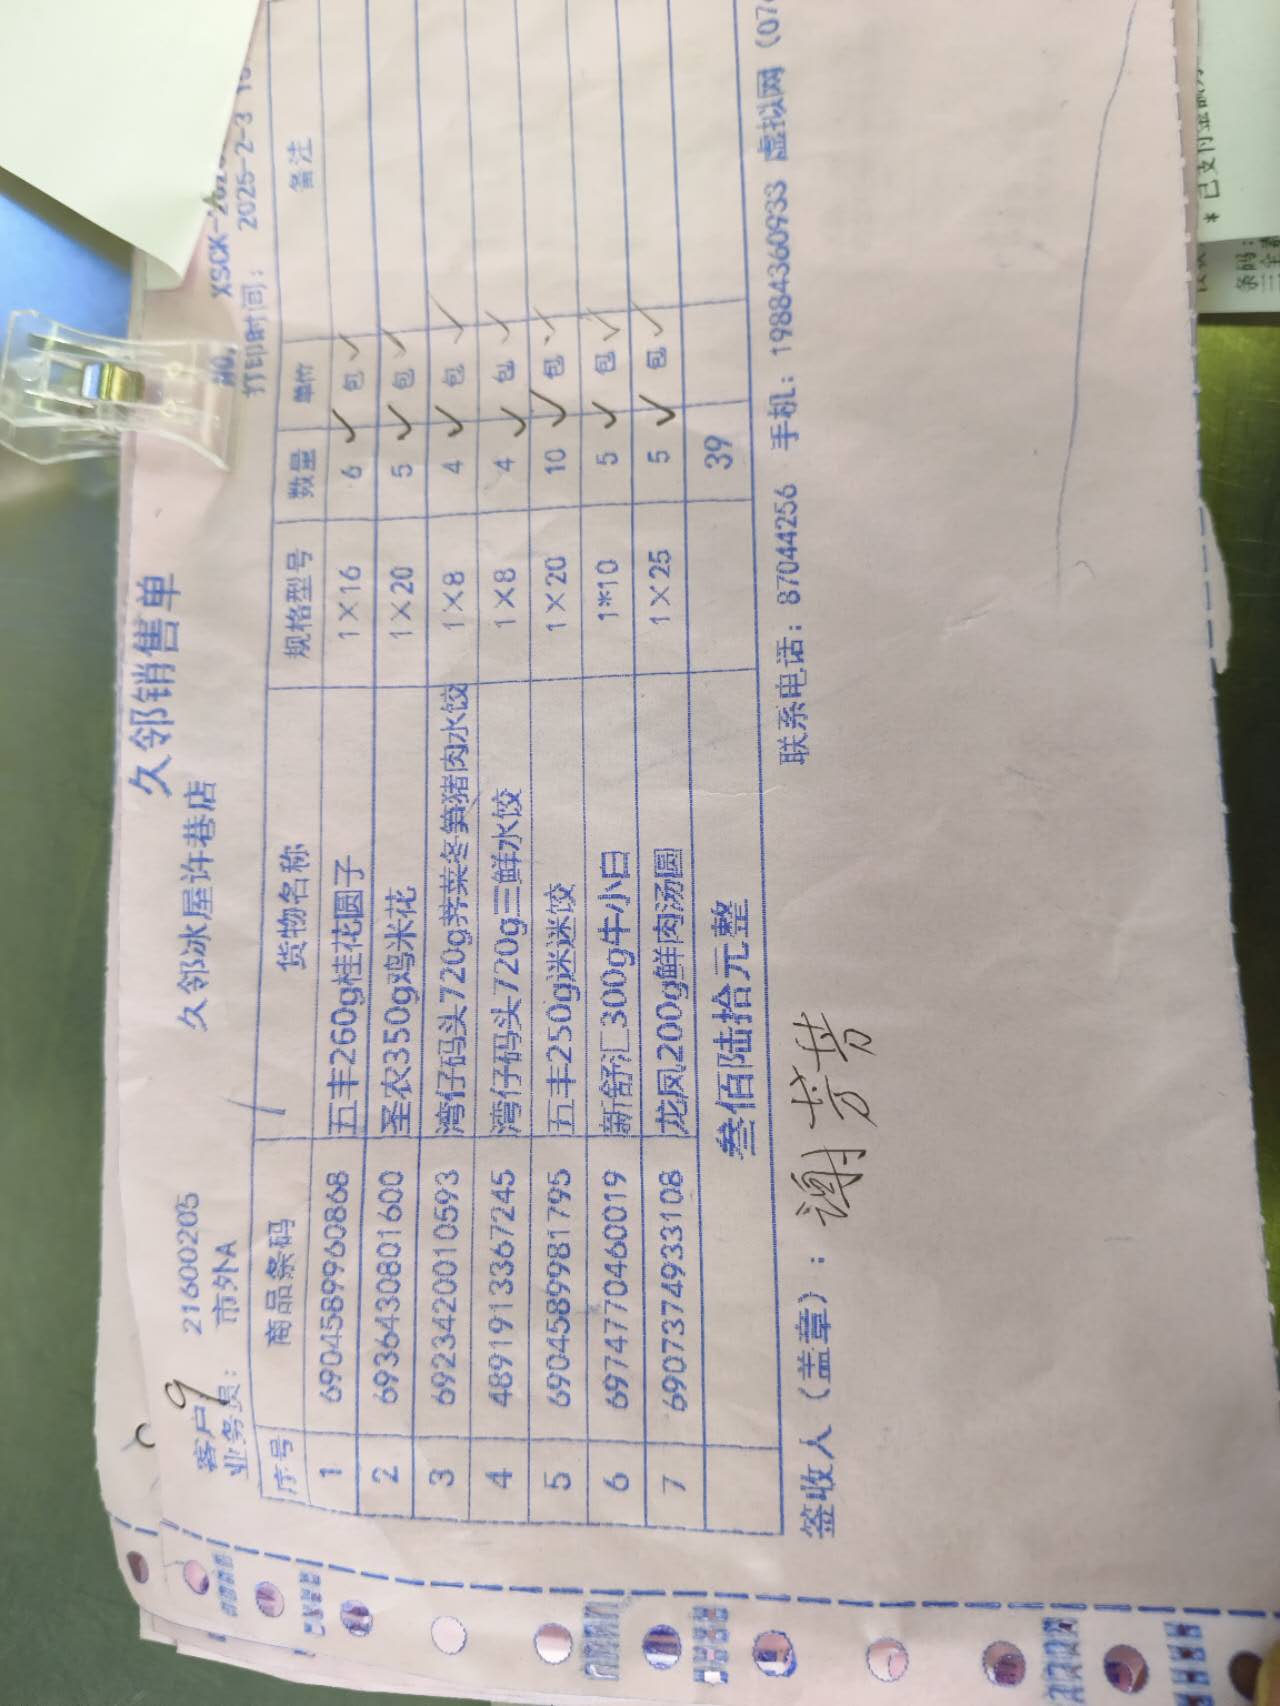 久邻销售单
客户 21600205 久邻冰屋许巷店 NO. XSCK-202
业务员: 市外A 打印时间: 2025-2-3
序号 商品条码 货物名称 规格型号 数量 单位 备注
1 6904589960868 五丰260g桂花圆子 1×16 6 包
2 6936430801600 圣农350g鸡米花 1×20 5 包
3 6923420010593 湾仔码头720g荠菜冬笋猪肉水饺 1×8 4 包
4 4891913367245 湾仔码头720g三鲜水饺 1×8 4 包
5 6904589981795 五丰250g迷迷饺 1×20 10 包
6 6974770460019 新舒汇300g牛小白 1*10 5 包
7 6907374933108 龙凤200g鲜肉汤圆 1×25 5 包
叁佰陆拾元整 39
签收人（盖章）: 谢芬芳 联系电话: 87044256 手机: 19884360933 虚拟网（07
*已支付金额
条码: